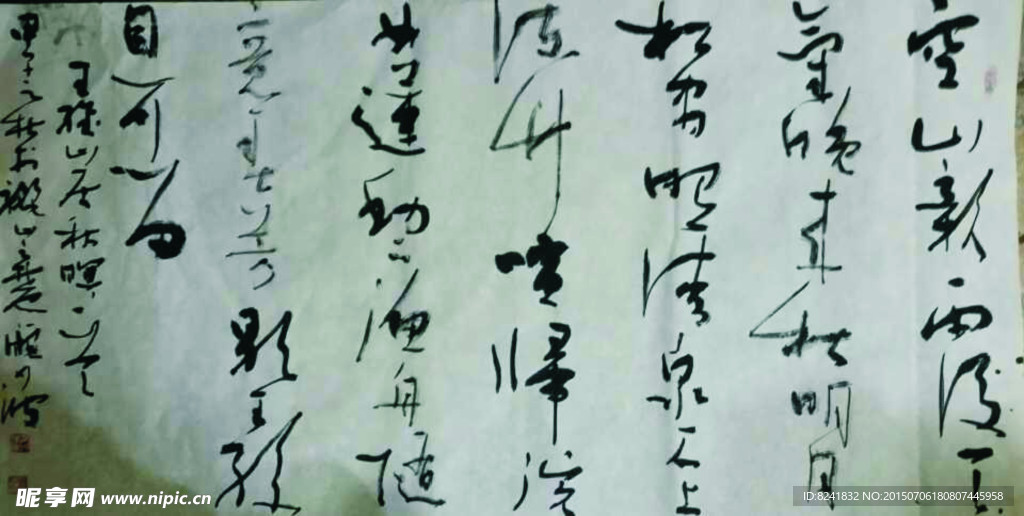 空山新雨後天
氣晚来秋明月
松間照清泉石上
流竹喧歸浣
女蓮動下漁舟隨
意春芳歇王孫
自可留
王維山居秋暝一首
昵享网 www.nipic.cn
ID:8241832 NO:20150706180807445958